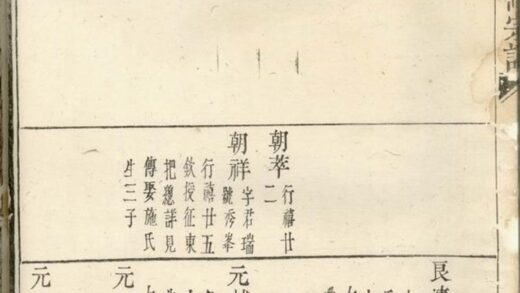 宗譜
朝萃 行禧廿
二
朝祥 字君瑞
號秀峯
行禧廿五
欽授征東
把總詳見
傳娶施氏
生三子
元
元
元